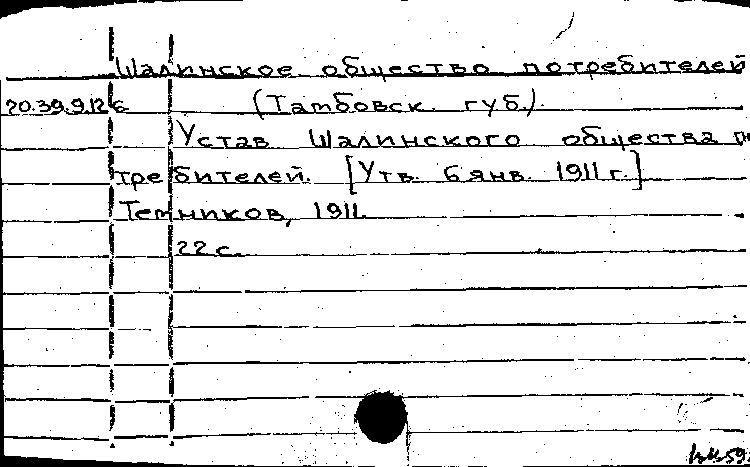 Шалинское общество потребителей
20.39.9.126 (Тамбовск. губ.).
Устав Шалинского общества по
требителей. [Утв. 6 янв. 1911 г.]
Темников, 1911.
22 с.